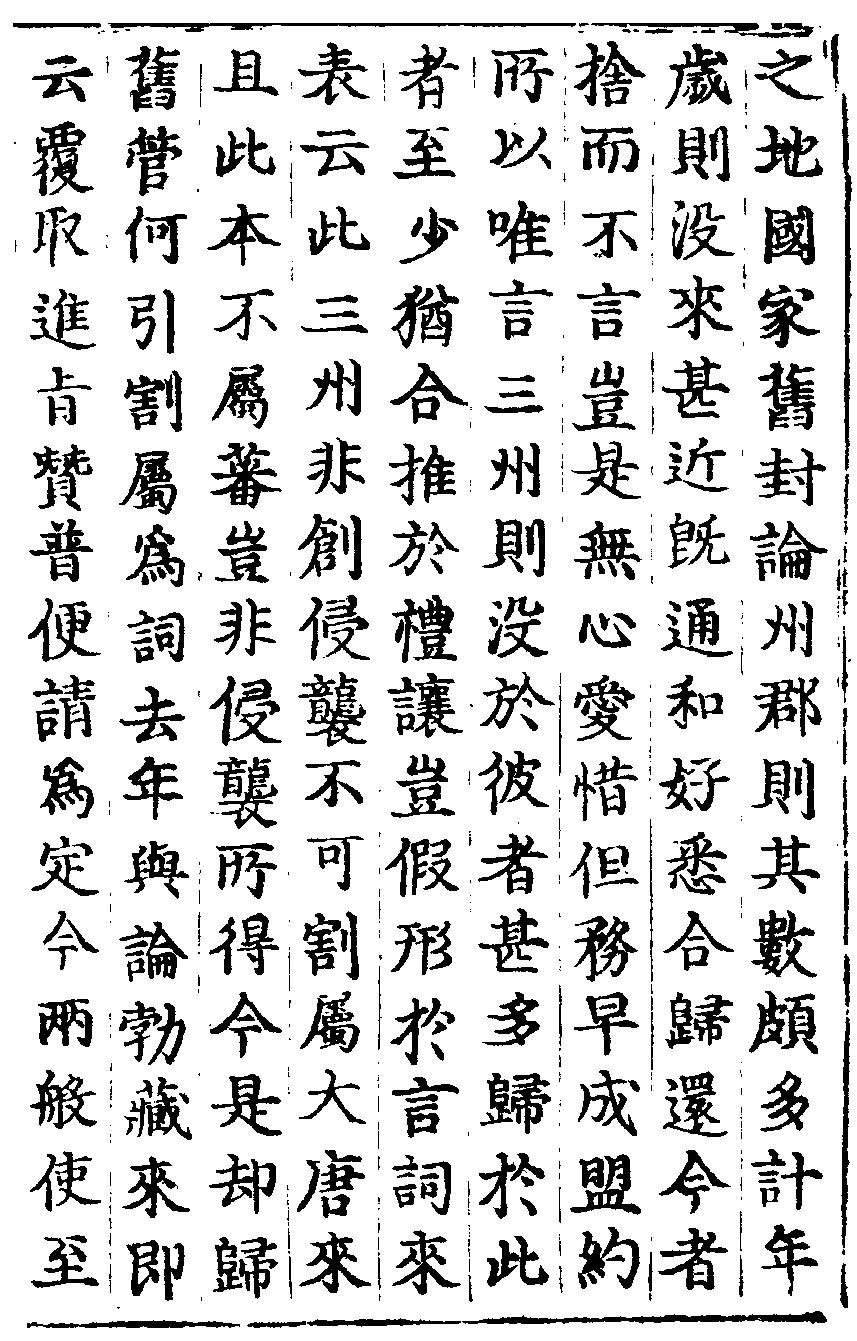 之地國家舊封論州郡則其數頗多計年
歲則没來甚近旣通和好悉合歸還今者
捨而不言豈是無心愛惜但務早成盟約
所以唯言三州則没於彼者甚多歸於此
者至少猶合推於禮讓豈假形於言詞來
表云此三州非創侵襲不可割屬大唐來
且此本不屬蕃豈非侵襲所得今是却歸
舊管何引割屬爲詞去年與論勃藏來即
云覆取進旨贊普便請爲定今兩般使至